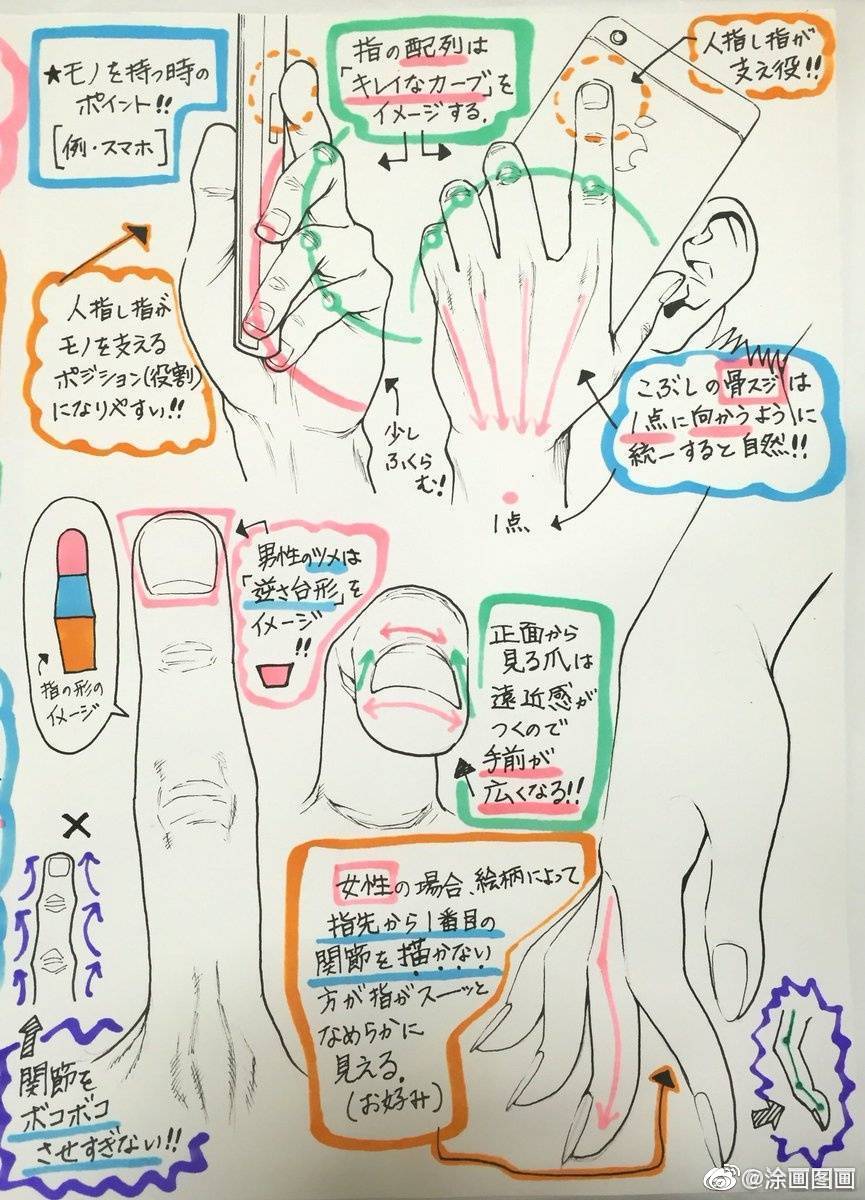 ★モノを持つ時の
ポイント!!
[例・スマホ]
指の配列は
「キレイなカーブ」を
イメージする.
人指し指が
支え役!!
人指し指が
モノを支える
ポジション(役割)
になりやすい!!
少し
ふくら
む!
こぶしの骨スジは
1点に向かうように
統一すると自然!!
1点
指の形の
イメージ
男性のツメは
「逆さ台形」を
イメージ
!!
正面から
見る爪は
遠近感が
つくので
手前が
広くなる!!
×
関節を
ボコボコ
させすぎない!!
女性の場合、絵柄によって
指先から1番目の
関節を描かない
方が指がスーッと
なめらかに
見える.
(お好み)
@涂画图画